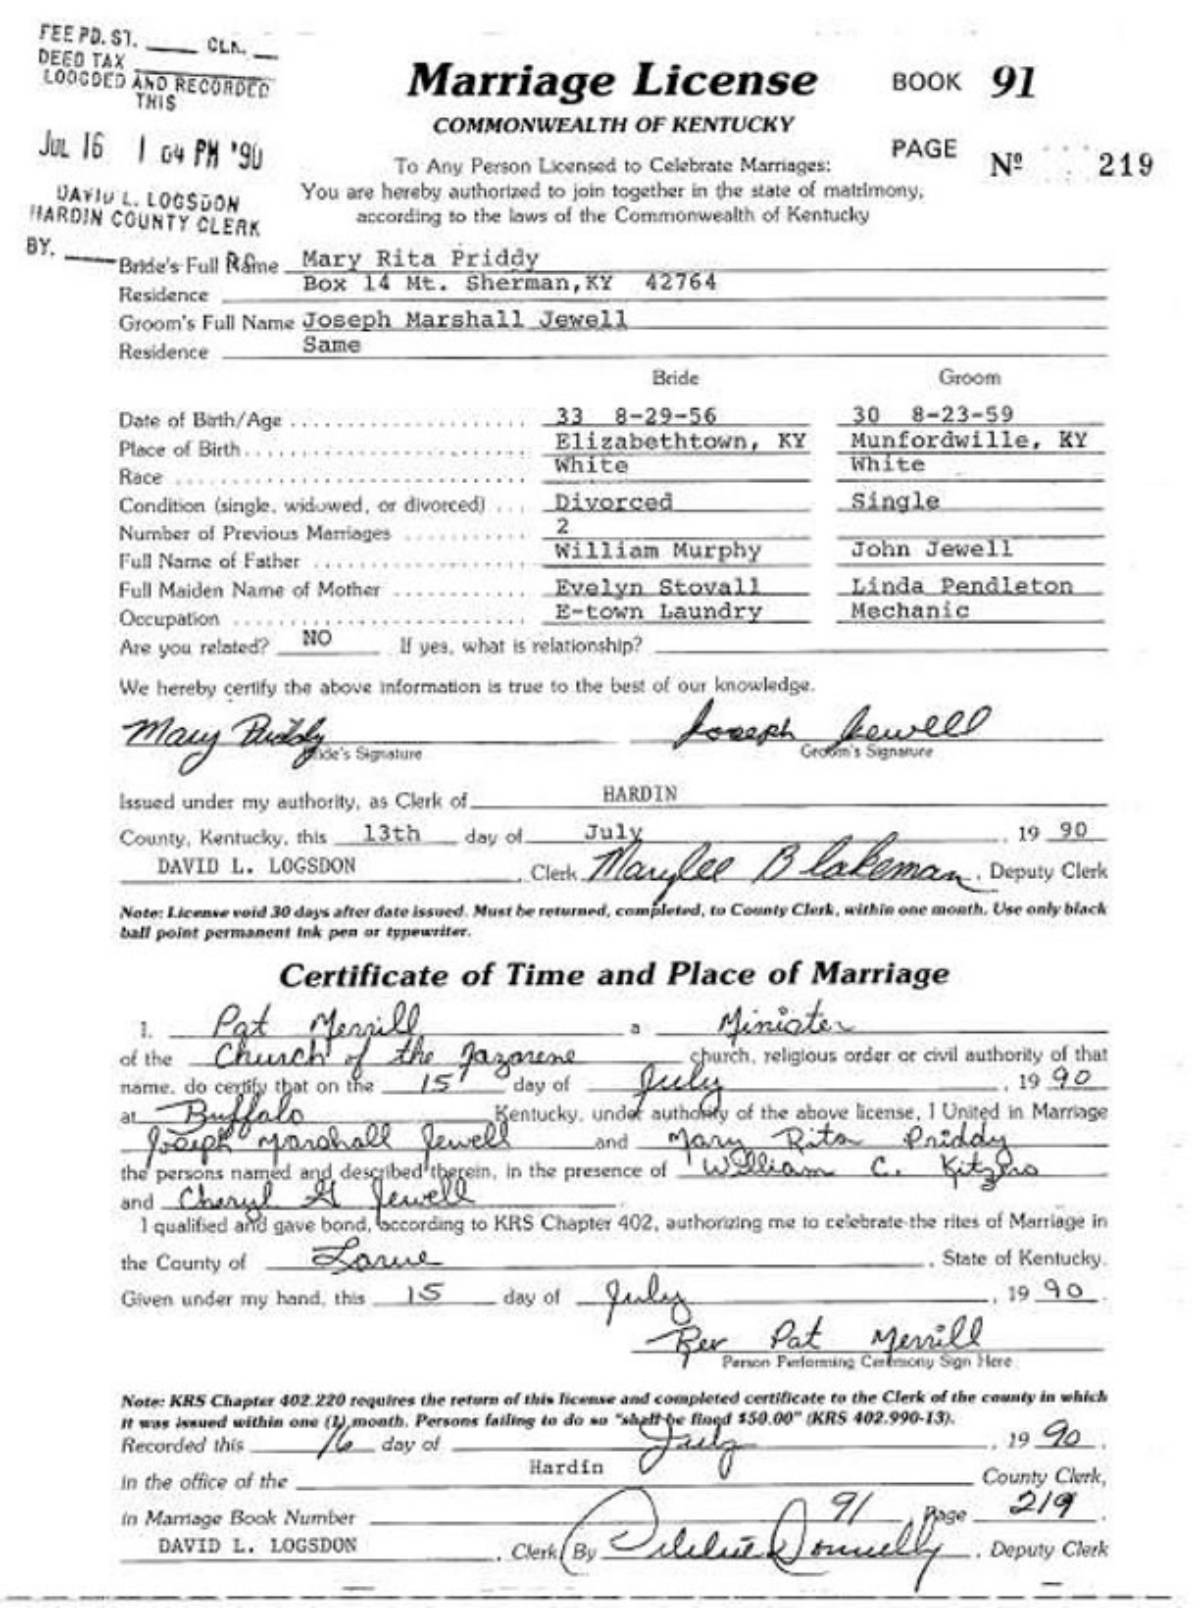 FEE PD. ST. ____ CLK. __
DEED TAX ____
LOOGDED AND RECORDED
THIS
JUL 16 1 04 PM '90
DAVID L. LOGSDON
HARDIN COUNTY CLERK
BY. ____
Marriage License
COMMONWEALTH OF KENTUCKY
BOOK 91
PAGE Nº 219
To Any Person Licensed to Celebrate Marriages:
You are hereby authorized to join together in the state of matrimony,
according to the laws of the Commonwealth of Kentucky
Bride's Full Name Mary Rita Priddy
Residence Box 14 Mt. Sherman,KY 42764
Groom's Full Name Joseph Marshall Jewell
Residence Same
Bride Groom
Date of Birth/Age 33 8-29-56 30 8-23-59
Place of Birth Elizabethtown, KY Munfordwille, KY
Race White White
Condition (single, widowed, or divorced) Divorced Single
Number of Previous Marriages 2
Full Name of Father William Murphy John Jewell
Full Maiden Name of Mother Evelyn Stovall Linda Pendleton
Occupation E-town Laundry Mechanic
Are you related? NO If yes, what is relationship?
We hereby certify the above information is true to the best of our knowledge.
Mary Priddy Joseph Jewell
Bride's Signature Groom's Signature
Issued under my authority, as Clerk of HARDIN
County, Kentucky, this 13th day of July, 19 90
DAVID L. LOGSDON, Clerk Marylee Blakeman, Deputy Clerk
Note: License void 30 days after date issued. Must be returned, completed, to County Clerk, within one month. Use only black
ball point permanent ink pen or typewriter.
Certificate of Time and Place of Marriage
I, Pat Merrill a Minister
of the Church of the Nazarene church, religious order or civil authority of that
name, do certify that on the 15 day of July, 19 90
at Buffalo Kentucky, under authority of the above license, I United in Marriage
Joseph Marshall Jewell and Mary Rita Priddy
the persons named and described therein, in the presence of William C.
and Cheryl Jewell
I qualified and gave bond, according to KRS Chapter 402, authorizing me to celebrate the rites of Marriage in
the County of Larue, State of Kentucky.
Given under my hand, this 15 day of July, 19 90.
Rev Pat Merrill
Person Performing Ceremony Sign Here
Note: KRS Chapter 402.220 requires the return of this license and completed certificate to the Clerk of the county in which
it was issued within one (1) month. Persons failing to do so "shall be fined $50.00" (KRS 402.990-13).
Recorded this 16 day of July, 19 90.
in the office of the Hardin County Clerk,
in Marriage Book Number 91 Page 219.
DAVID L. LOGSDON, Clerk By Debbie Donnelly, Deputy Clerk